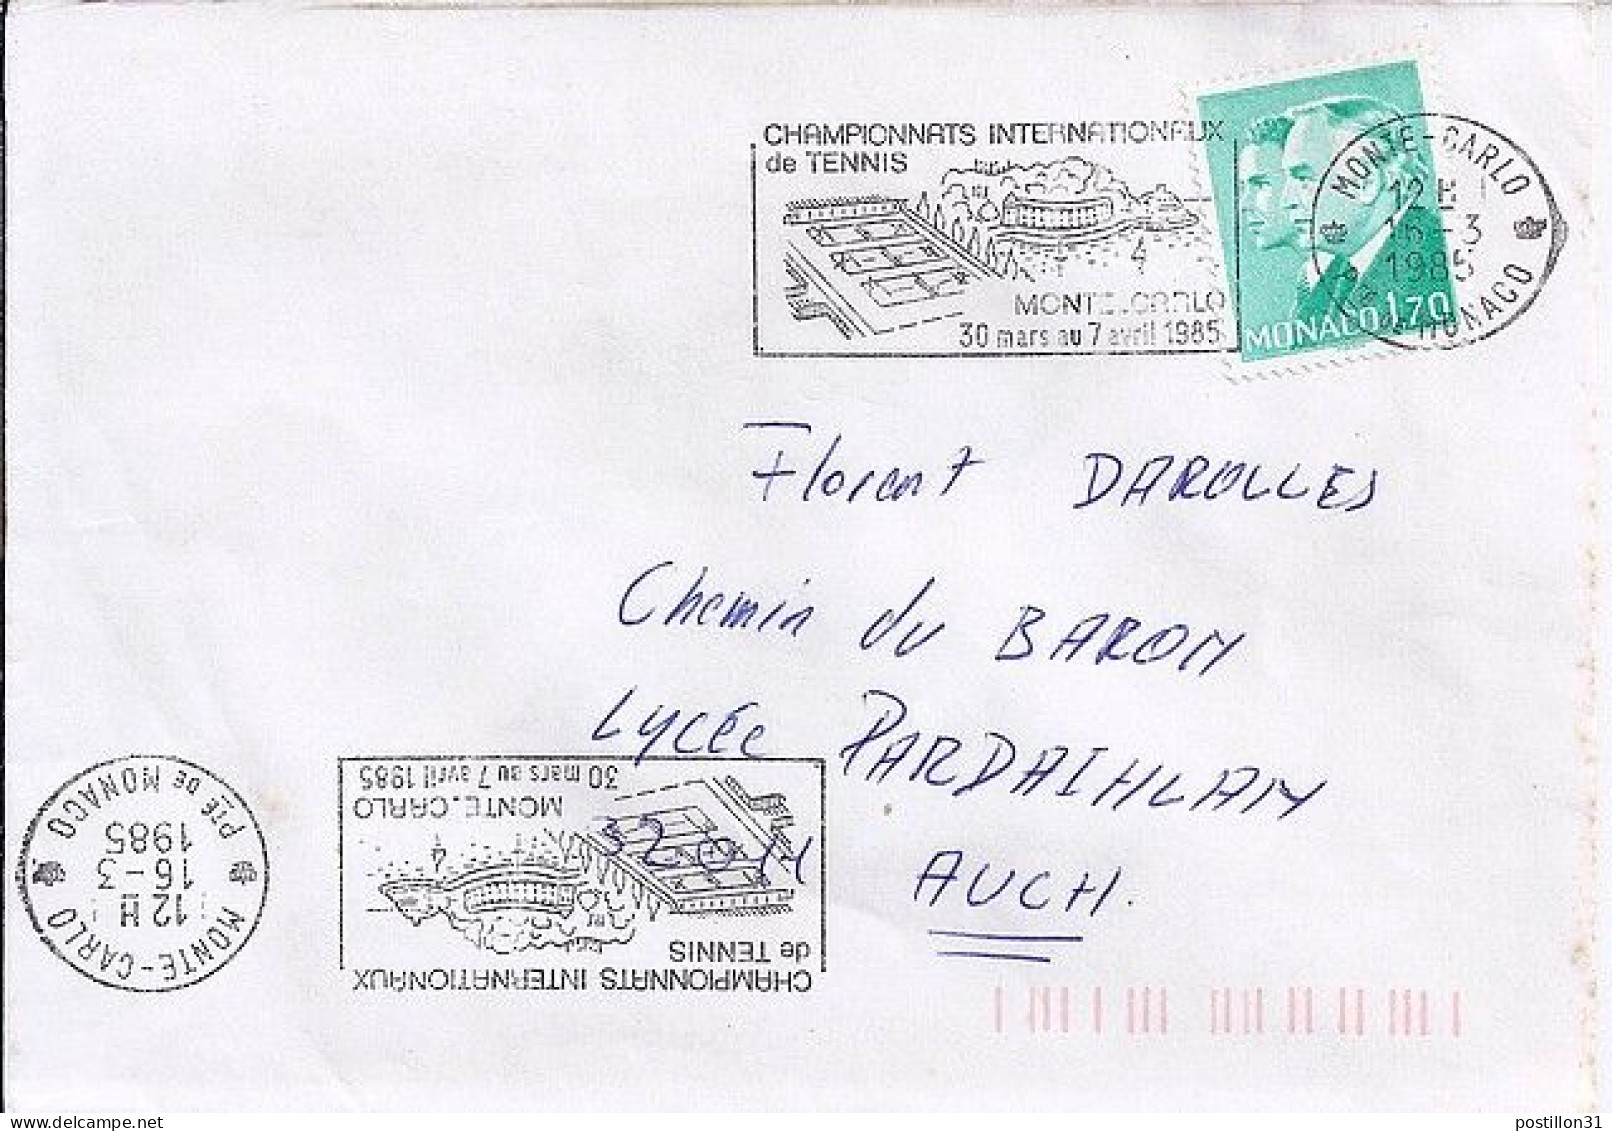 CHAMPIONNATS INTERNATIONAUX
de TENNIS
MONTE-CARLO
30 mars au 7 avril 1985
MONACO 1,70
MONTE-CARLO
12 H
16-3
1985
Pté de MONACO
Florent DAROLLES
Chemin du BARON
Lycée PARDAILHAN
32011 AUCH.
MONTE-CARLO
12 H
16-3
1985
PTÉ DE MONACO
CHAMPIONNATS INTERNATIONAUX
de TENNIS
MONTE-CARLO
30 mars au 7 avril 1985
postillon31